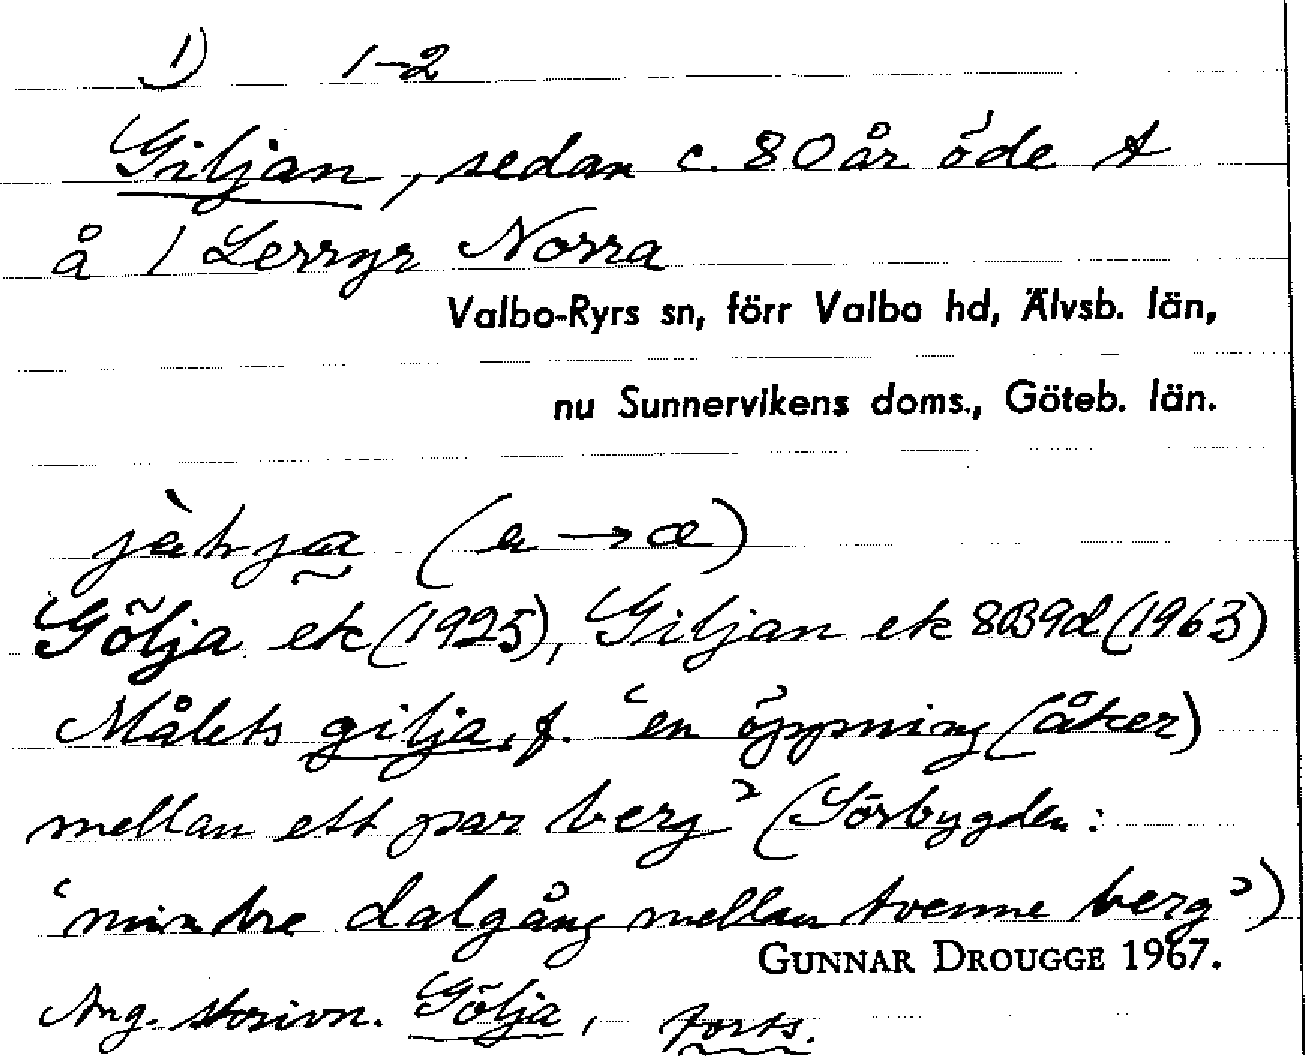 1) 1-2
Giljan, sedan c. 80 år öde t
å 1 Lerryr Norra
Valbo-Ryrs sn, förr Valbo hd, Älvsb. län,
nu Sunnervikens doms., Göteb. län.
(a → æ)
Gölja ek (1925), Giljan ek 8B9d (1963)
Målets gilja, f. ‘en öppning (åker)
mellan ett par berg’ (Sörbygden:
‘mindre dalgång mellan tvenne berg’)
GUNNAR DROUGGE 1967.
Ang. skrivn. Gölja, forts.